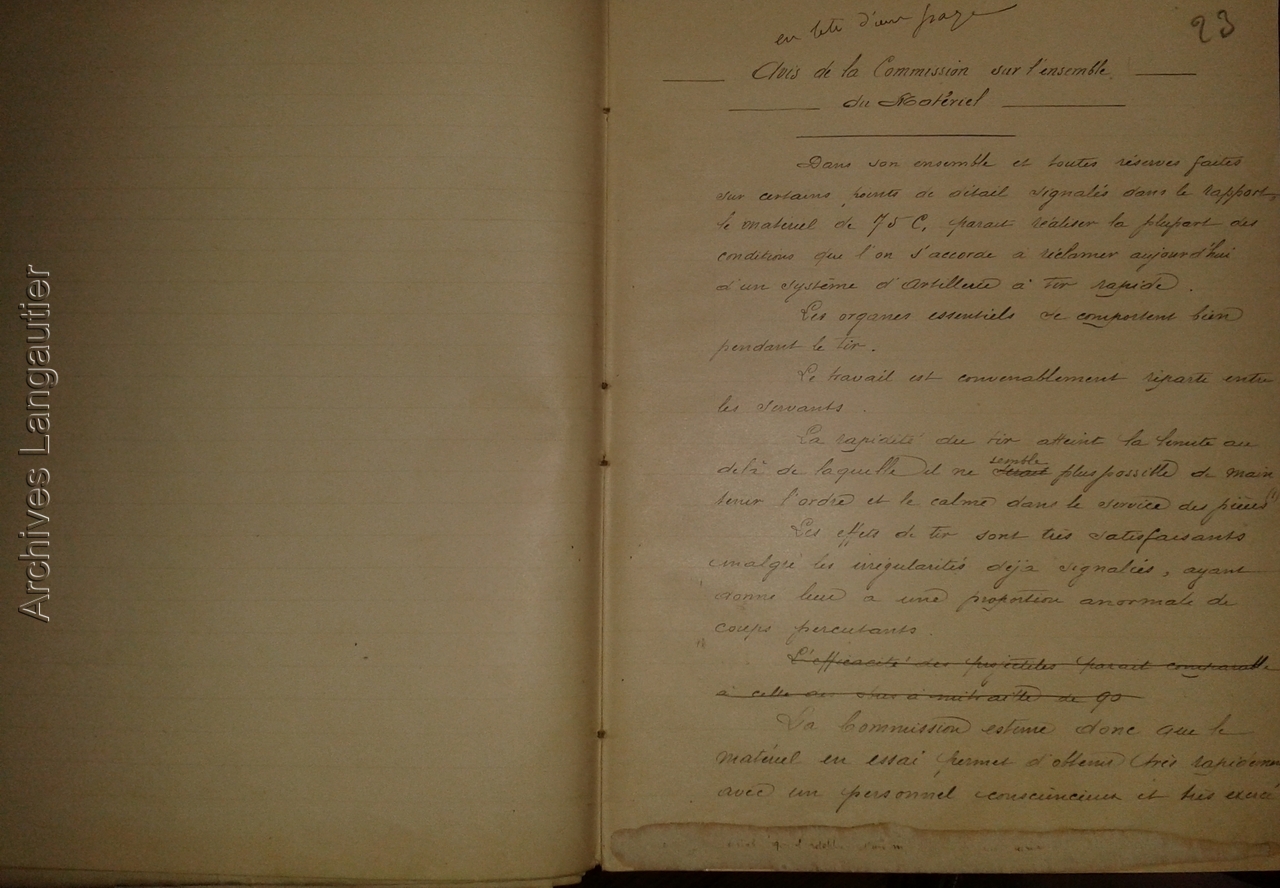 Archives Langautier
en tete d'une page
23
Avis de la Commission sur l'ensemble
du Matériel
Dans son ensemble et toutes réserves faites
sur certains points de détail signalés dans le rapport,
le matériel de 75 C. parait réaliser la plupart des
conditions que l'on s'accorde à réclamer aujourd'hui
d'un système d'Artillerie à tir rapide.
Les organes essentiels se comportent bien
pendant le tir.
Le travail est convenablement réparti entre
les servants.
La rapidité du tir atteint la limite au
delà de laquelle il ne semble plus possible de main
tenir l'ordre et le calme dans le service des pièces
Les effets de tir sont très satisfaisants
malgré les irrégularités déjà signalées, ayant
donné lieu à une proportion anormale de
coups percutants.
L'efficacité des projectiles parait comparable
à celle des obus à mitraille de 90
La Commission estime donc que le
matériel en essai permet d'obtenir très rapidemen
avec un personnel consciencieux et très exercé